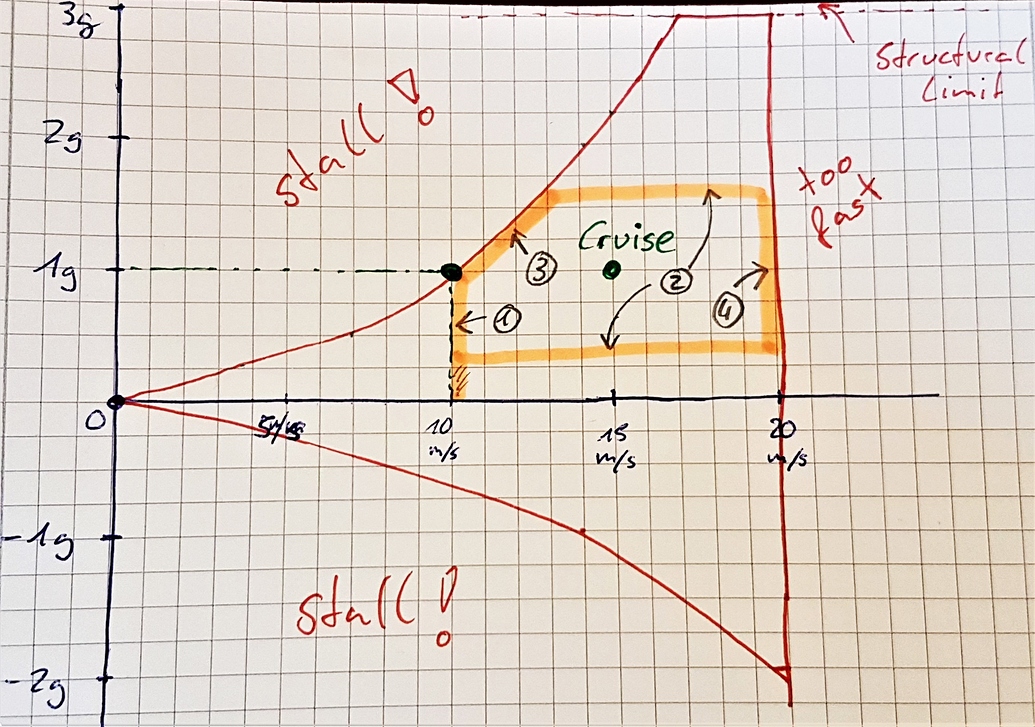 3g
Structural
Limit
Stall!
2g
too
fast
Cruise
1g
③
②
④
①
0
10
m/s
15
m/s
20
m/s
-1g
Stall!
-2g